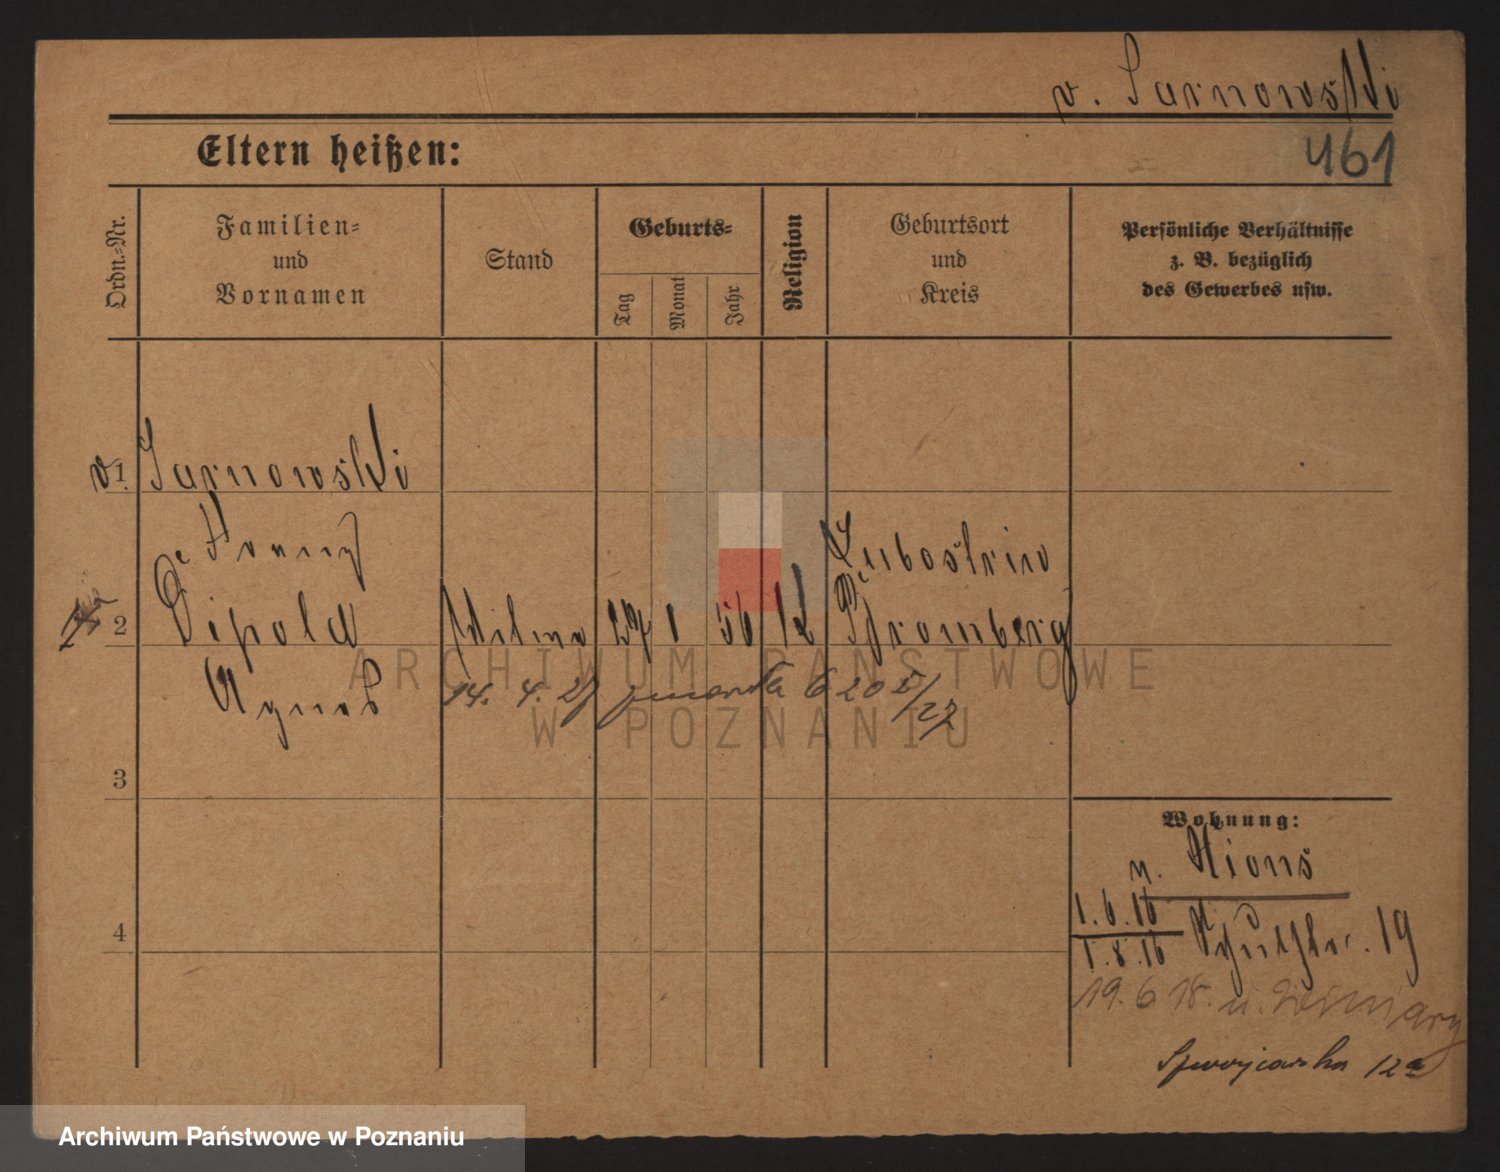 v. Sarnowski
461
Eltern heißen:
Ordn.=Nr.
Familien=
und
Vornamen
Stand
Geburts=
Tag
Monat
Jahr
Religion
Geburtsort
und
Kreis
Persönliche Verhältnisse
z. B. bezüglich
des Gewerbes usw.
v. 1 Sarnowski
2
Witwe 27 1 56 k
Lubostrin
Bromberg
Agnes
14. 4. 27 zmarła 620 /27
3
Wohnung:
n. Xions
1.6.16
1.8.16 Schulstr. 19
4
19. 6 18. n.
12a
ARCHIWUM PAŃSTWOWE
W POZNANIU
Archiwum Państwowe w Poznaniu